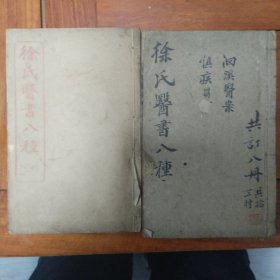 徐氏醫書八種
徐氏醫書八種
洄溪醫案
慎疾
共訂八冊